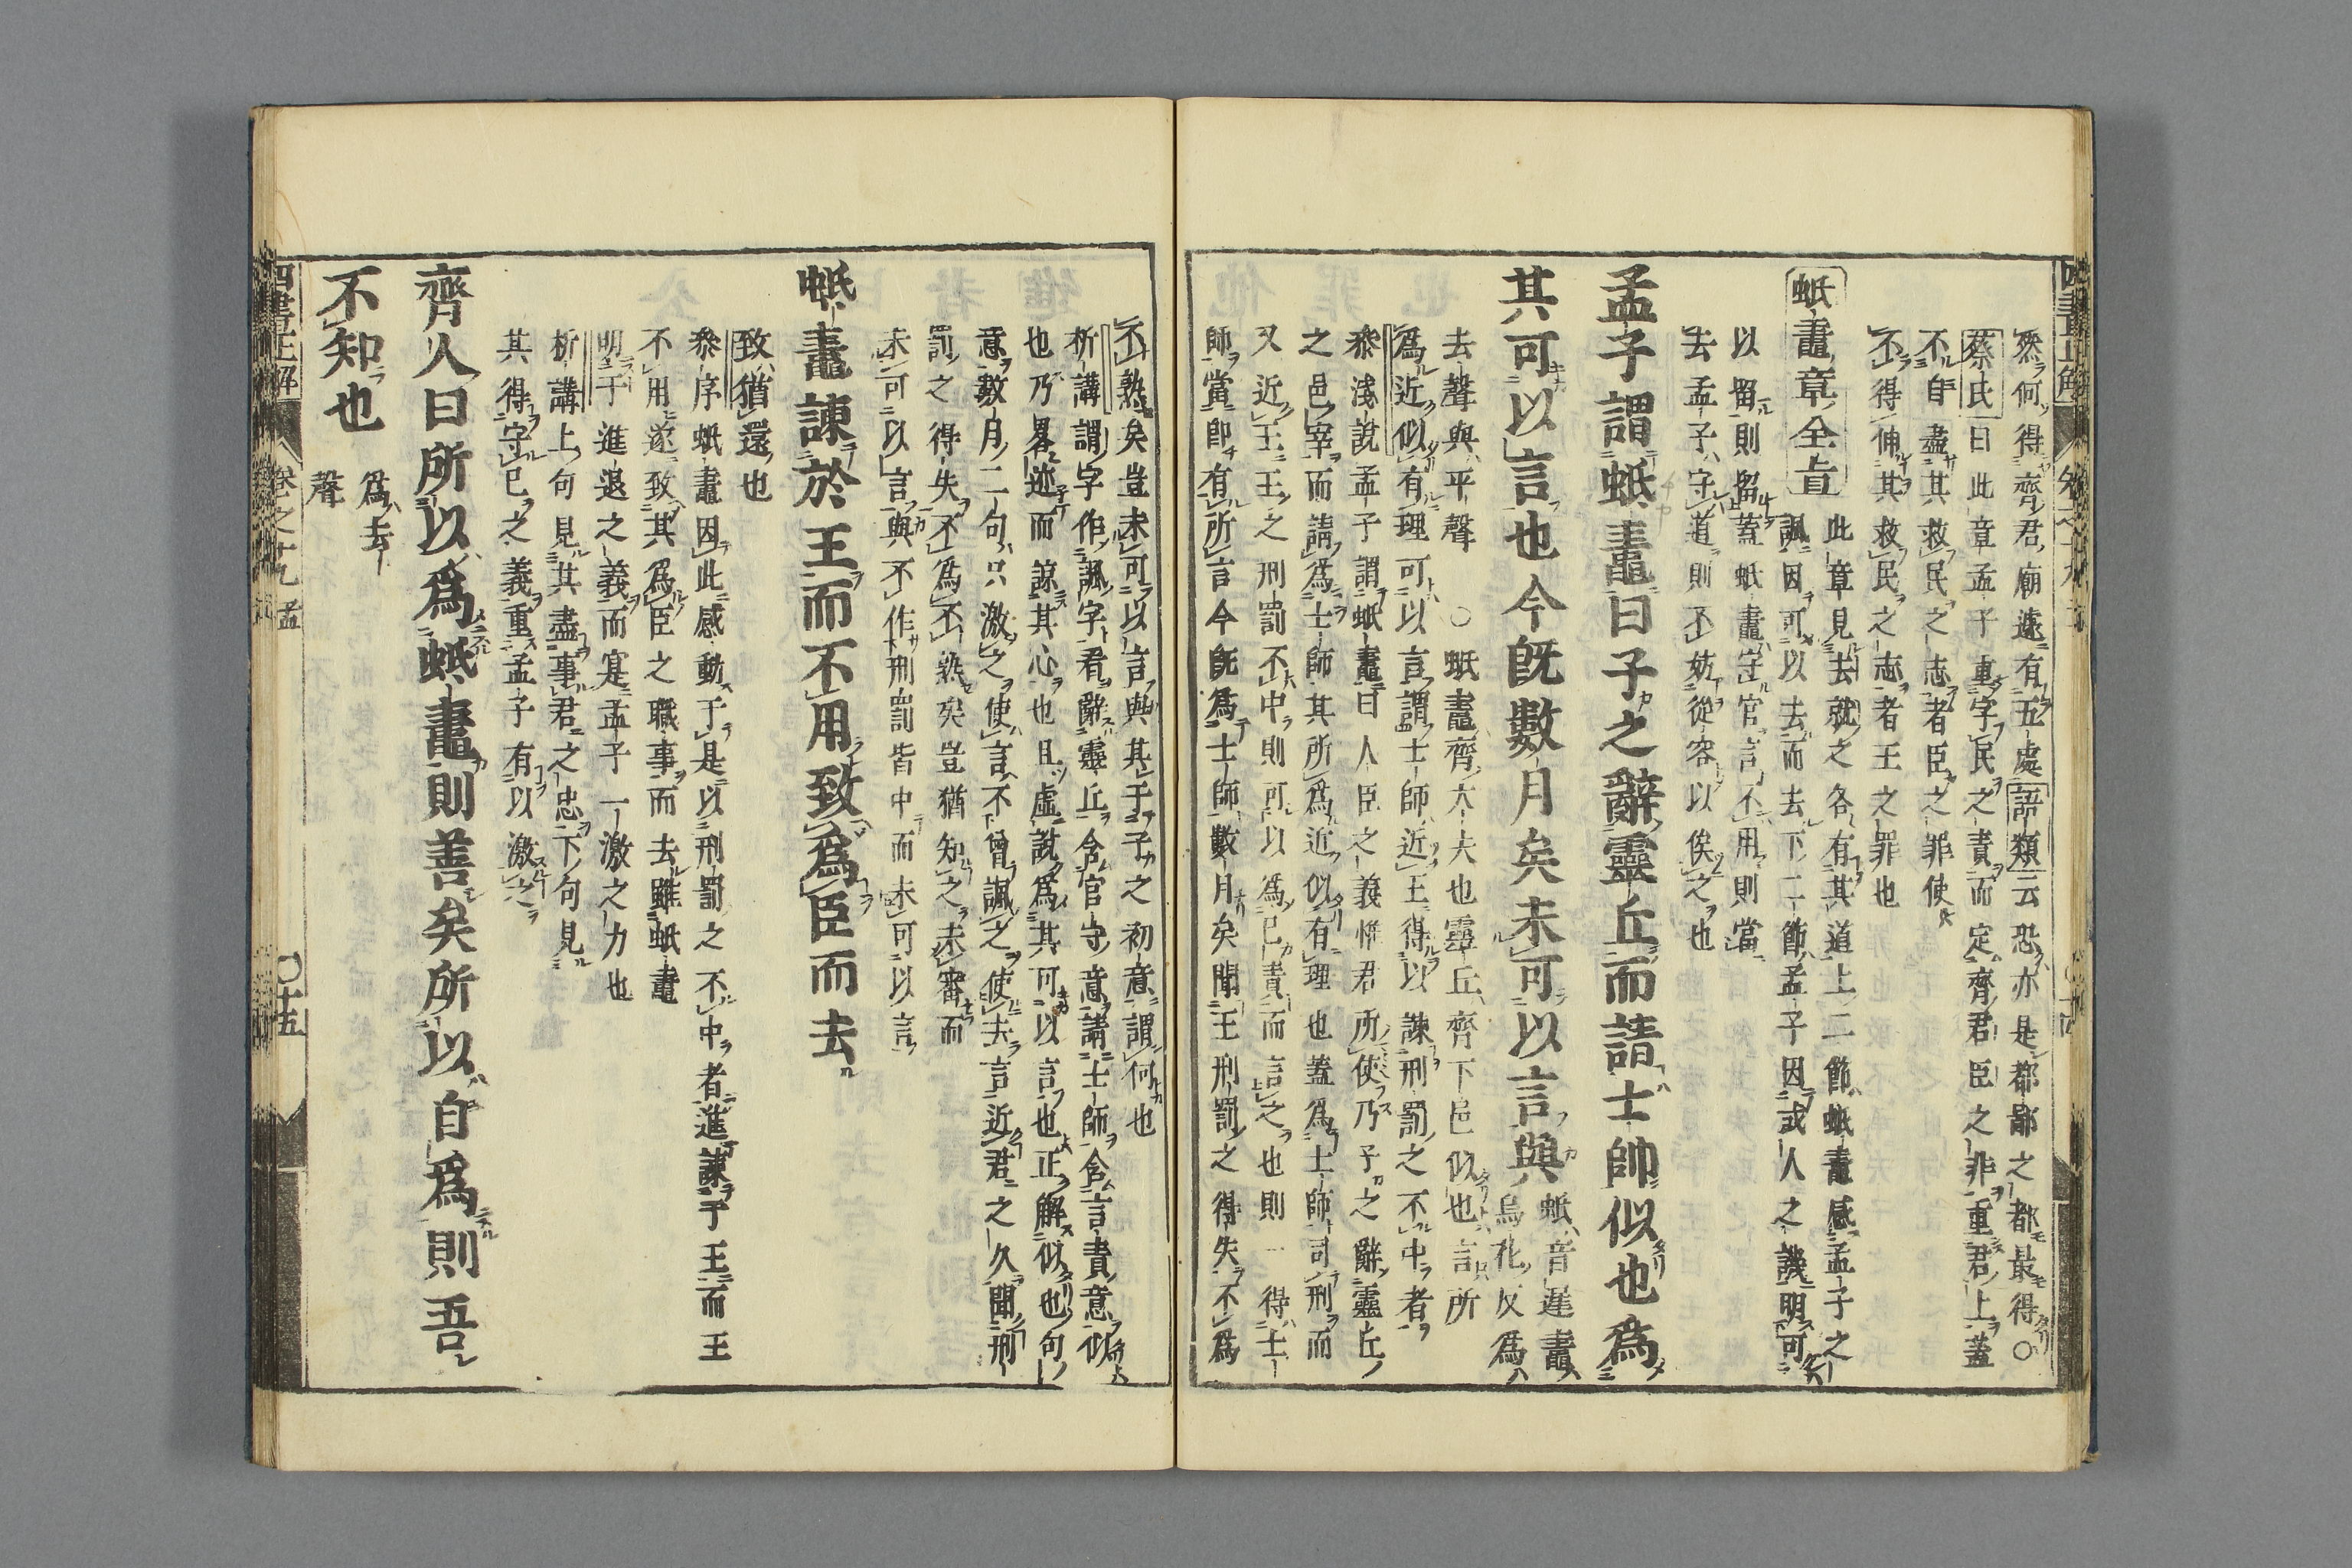 然何得齊君廟遠有五處語類云恐亦是都鄙之都最得○
蔡氏曰此章孟子重字民之責而定齊君臣之非重君上蓋
不自盡其救民之志者臣之罪使
不得伸其救民之志者王之罪也
蚳鼃章全旨此章見去就之各有其道上二節蚳鼃感孟子之
諷因可以去而去下二節孟子因或人之譏明可
以留則留蓋蚳鼃守官言不用則當
去孟子守道則不妨從容以俟之也
孟子謂蚳鼃曰子之辭靈丘而請士師似也爲
其可以言也今既數月矣未可以言與蚳音遲鼃烏花反爲
去聲與平聲　○　蚳鼃齊大夫也靈丘齊下邑似也言所
爲近似有理可以言謂士師近王得以諫刑罰之不中者
參淺說孟子謂蚳鼃曰人臣之義惟君所使乃子之辭靈丘
之邑宰而請爲士師其所爲近似有理也蓋爲士師司刑而
又近王王之刑罰不中則可以爲己責而言之也則一得士
師當即有所言今既爲士師數月矣聞王刑罰之得失不爲
不熟矣豈未可以言與其于子之初意謂何也
析講謂字作諷字看辭靈丘含官守意請士師含言責意似
也乃畧迹而諒其心也且虛說爲其可以言也正解似也句
意數月二句只激之使言不曾諷之使去言近君之久聞刑
罰之得失不爲不熟矣豈猶知之未審而
未可以言與不作刑罰皆中而未可以言
蚳鼃諫於王而不用致爲臣而去
致猶還也
參序蚳鼃因此感動于是以刑罰之不中者進諫于王而王
不用遂致其爲臣之職事而去雖蚳鼃
明于進退之義而寔孟子一激之力也
析講上句見其盡事君之忠下句見
其得守已之義重孟子有以激之
齊人曰所以爲蚳鼃則善矣所以自爲則吾
不知也爲去聲
四書正解
卷之十九 孟
十五